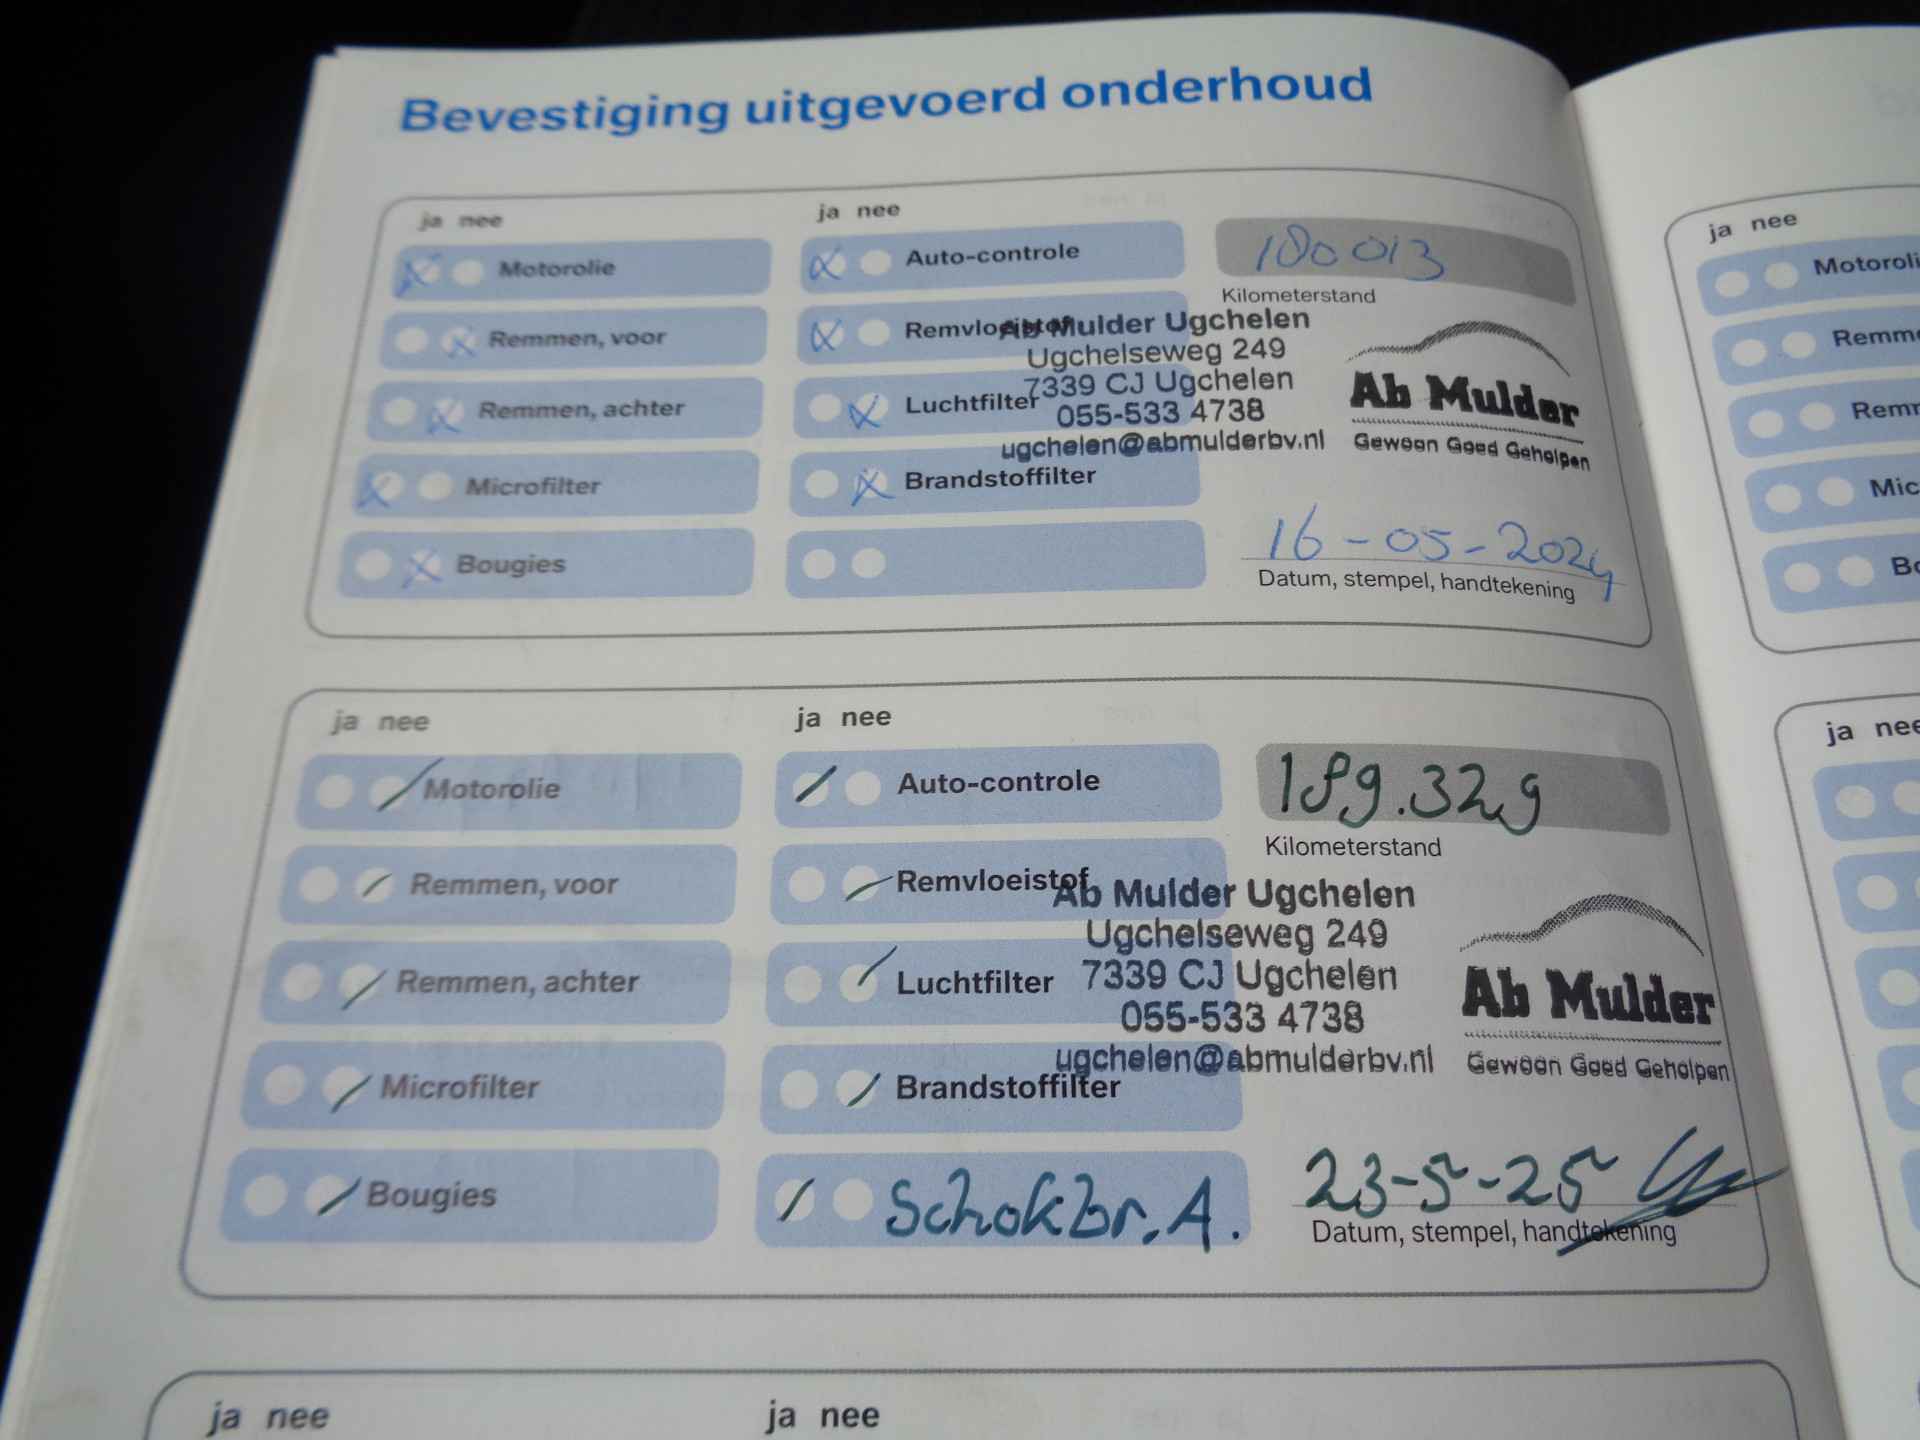 Bevestiging uitgevoerd onderhoud
ja nee
Motorolie
Remmen, voor
Remmen, achter
Microfilter
Bougies
ja nee
Auto-controle
Remvloeistof
Luchtfilter
Brandstoffilter
180013
Kilometerstand
Ab Mulder Ugchelen
Ugchelseweg 249
7339 CJ Ugchelen
055-533 4738
ugchelen@abmulderbv.nl
Ab Mulder
Gewoon Goed Geholpen
16-05-2024
Datum, stempel, handtekening
ja nee
Motorolie
Remmen, voor
Remmen, achter
Microfilter
Bougies
ja nee
Auto-controle
Remvloeistof
Luchtfilter
Brandstoffilter
Schokbr. A.
189.329
Kilometerstand
Ab Mulder Ugchelen
Ugchelseweg 249
7339 CJ Ugchelen
055-533 4738
ugchelen@abmulderbv.nl
Ab Mulder
Gewoon Goed Geholpen
23-5-25
Datum, stempel, handtekening
ja nee
ja nee
ja nee
Motoroli
Remm
Rem
Mic
Bo
ja nee